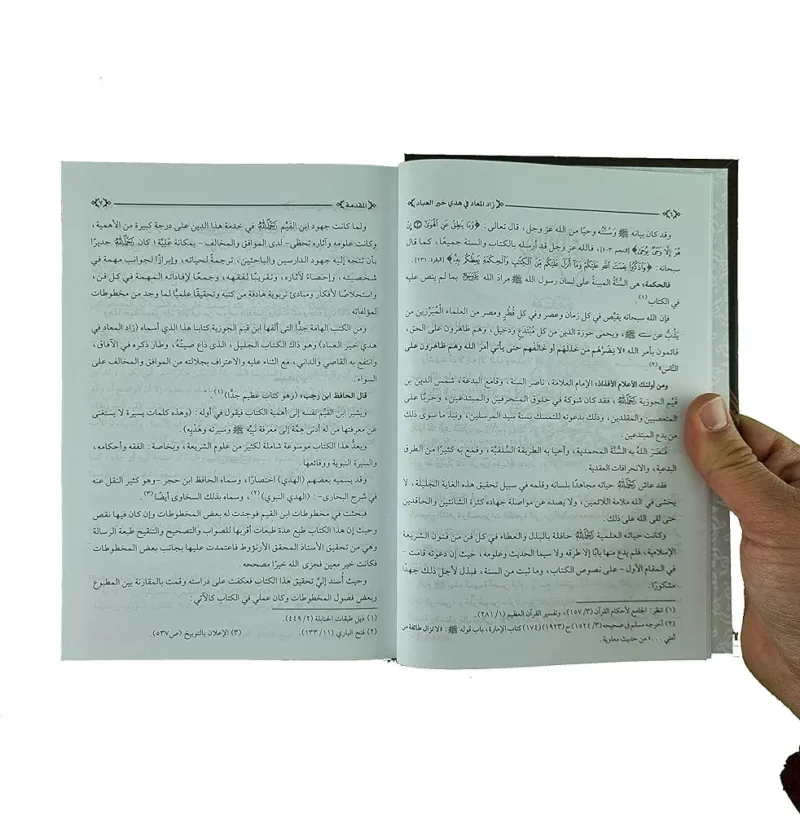 زاد المعاد في هدي خير العباد
٦
وقد كان بيانه ﷺ وسُنَّته وحيًا من الله عز وجل، قال تعالى: ﴿وَمَا يَنطِقُ عَنِ ٱلْهَوَىٰٓ ۝٣ إِنْ
هُوَ إِلَّا وَحْىٌ يُوحَىٰ﴾ [النجم ٣-٤]، فالله عز وجل قد أرسله بالكتاب والسنة جميعًا، كما قال
سبحانه: ﴿وَٱذْكُرُوا۟ نِعْمَتَ ٱللَّهِ عَلَيْكُمْ وَمَآ أَنزَلَ عَلَيْكُم مِّنَ ٱلْكِتَٰبِ وَٱلْحِكْمَةِ يَعِظُكُم بِهِ﴾ [البقرة: ٢٣١].
فالحكمة: هى السُّنَّة المبينةُ على لسان رسول الله ﷺ مرادَ الله بما لم ينص عليه
في الكتاب(١)
فإن الله سبحانه يقيِّض في كل زمان وعصر وفي كل قُطرٍ ومصر من العلماء المُبَرِّزين من
يَذُبُّ عن سنته ﷺ، ويحمى حوزة الدين من كل مُبتدَع ودخيل، وهم ظاهرون على الحق،
قائمون بأمر الله «لا يضُرُّهم من خَذَلَهُم أو خالَفَهم حتى يأتي أمر الله وهم ظاهرون على
النَّاسِ»(٢)
ومن أولئك الأعلام الأفذاذ: الإمام العلامة، ناصر السنة، وقامع البدعة، شمس الدين بن
قيِّم الجوزية رَحِمَهُ اللهُ، فقد كان شوكة في حلوق المنحرفين والمبتدعين، وحَربًا على
المتعصبين والمقلدين، وذلك بدعوته للتمسك بسنة سيد المرسلين، ونبذ ما سوى ذلك
من بدع المبتدعين.
فنَصَرَ اللهُ به السنَّة المحمدية، وأحيا به الطريقة السَّلفيَّة، وقمع به كثيرًا من الطرق
البدعية، والانحرافات العقدية
فقد عاش رَحِمَهُ اللهُ حياته مجاهدًا بلسانه وقلمه في سبيل تحقيق هذه الغاية الجليلة، لا
يخشى في الله ملامة اللائمين، ولا يصده عن مواصلة جهاده كثرة الشانئين والحاقدين
حتى لقى الله على ذلك.
وكانت حياته العلمية رَحِمَهُ اللهُ حافلة بالبذل والعطاء في كل فن من فنون الشريعة
الإسلامية، فلم يدع منها بابًا إلا طرقه ولا سيما الحديث وعلومه، حيث إن دعوته قامت-
في المقام الأول- على نصوص الكتاب، وما ثبت من السنة، فبذل لأجل ذلك جهدًا
مشكورًا.
(١) انظر: الجامع لأحكام القرآن (٣/١٥٧)، وتفسير القرآن العظيم (١/٢٨١).
(٢) أخرجه مسلم في صحيحه (٣/١٥٢٤) ح (١٩٢٣) (١٧٤) كتاب الإمارة، باب قوله ﷺ: «لا تزال طائفة من
أمتي ...» من حديث معاوية.
المقدمة
٧
ولما كانت جهود ابن القيِّم رَحِمَهُ اللهُ في خدمة هذا الدين على درجة كبيرة من الأهمية،
وكانت علومه وآثاره تحظى-لدى الموافق والمخالف- بمكانة عَلِيَّة؛ كان رَحِمَهُ اللهُ جديرًا
بأن تتجه إليه جهود الدارسين والباحثين، ترجمةً لحياته، وإبرازًا لجوانب مهمة في
شخصيته، وإحصاءً لآثاره، وتقريبًا لفقهه، وجمعًا لإفاداته المهمة في كل فن،
واستخلاصًا لأفكار ومبادئ تربوية هادفة من كتبه وتحقيقًا علميًّا لما وجد من مخطوطات
لمؤلفاته
ومن الكتب الهامة جدًّا التى ألفها ابن قيم الجوزية كتابنا هذا الذي أسماه (زاد المعاد في
هدي خير العباد) وهو ذاك الكتاب الجليل، الذى ذاع صيتُهُ، وطار ذكره في الآفاق،
وانتفع به القاصي والداني، مع الثناء عليه والاعتراف بجلالته من الموافق والمخالف على
السواء.
قال الحافظ ابن رجب: (وهو كتاب عظيم جدًّا)(١)
ويشير ابن القيِّم نفسه إلى أهمية الكتاب فيقول في أوله: (وهذه كلمات يسيرة لا يستغنى
عن معرفتها من له أدنى هِمَّة إلى معرفة نَبِيِّه ﷺ وسيرته وهَدْيه).
ويعدُّ هذا الكتاب موسوعة شاملة لكثير من علوم الشريعة، وبخاصة: الفقه وأحكامه،
والسيرة النبوية ووقائعها
وقد يسميه بعضهم (الهدي) اختصارًا، وسماه الحافظ ابن حجر-وهو كثير النقل عنه
في شرح البخارى-: (الهدي النبوي)(٢)، وسماه بذلك السخاوى أيضًا(٣).
فبحثت في مخطوطات ابن القيم فوجدت له بعض المخطوطات وإن كان فيها نقص
وحيث إن هذا الكتاب طبع عدة طبعات أقربها للصواب والتصحيح والتنقيح طبعة الرسالة
وهي من تحقيق الأستاذ المحقق الأرنؤوط فاعتمدت عليها بجانب بعض المخطوطات
فكانت خير معين فجزى الله خيرًا مصححه.
وحيث أُسند إليَّ تحقيق هذا الكتاب فعكفت على دراسته وقمت بالمقارنة بين المطبوع
وبعض فصول المخطوطات وكان عملي في الكتاب كالآتي:
(١) ذيل طبقات الحنابلة (٢/٤٤٩)
(٢) فتح الباري (١١/١٣٣). (٣) الإعلان بالتوبيخ (ص٥٣٧)